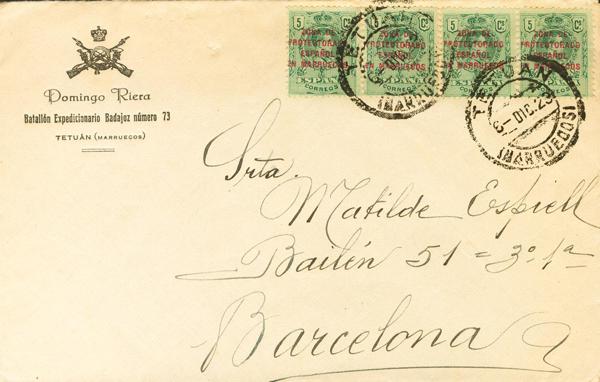 5 Cs 5 Cs 5 Cs 5 Cs
ZONA DE PROTECTORADO ESPAÑOL EN MARRUECOS
ZONA DE PROTECTORADO ESPAÑOL EN MARRUECOS
ZONA DE PROTECTORADO ESPAÑOL EN MARRUECOS
ZONA DE PROTECTORADO ESPAÑOL EN MARRUECOS
CORREOS
CORREOS
CORREOS
TETUAN
(MARRUECOS)
TETUAN
DIC.23
(MARRUECOS)
Domingo Riera
Batallón Expedicionario Badajoz número 73
TETUÁN (MARRUECOS)
Srta.
Matilde Espiell
Bailén 51 = 3º. 1ª
Barcelona